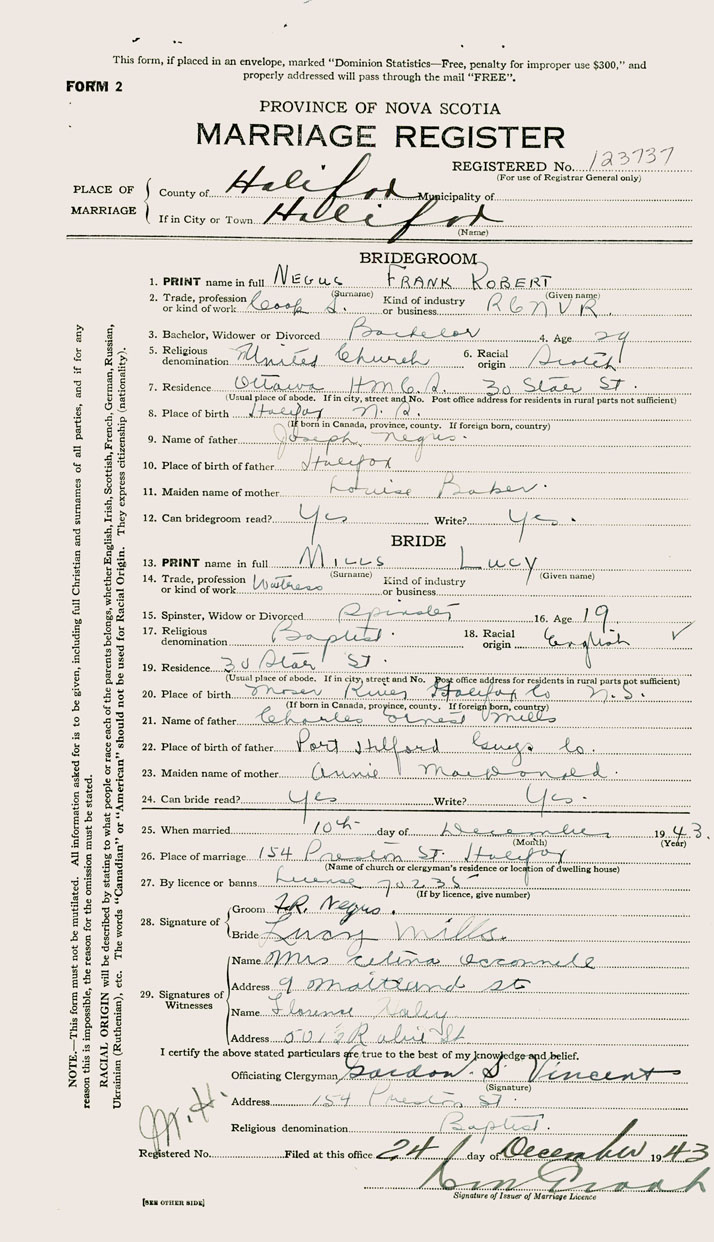 This form, if placed in an envelope, marked "Dominion Statistics—Free, penalty for improper use $300," and
properly addressed will pass through the mail "FREE".
FORM 2
PROVINCE OF NOVA SCOTIA
MARRIAGE REGISTER
REGISTERED No. 123737
(For use of Registrar General only)
PLACE OF MARRIAGE
County of Halifax Municipality of
If in City or Town Halifax
(Name)
BRIDEGROOM
1. PRINT name in full NEGUS FRANK ROBERT
(Surname) (Given name)
2. Trade, profession or kind of work Cook S. Kind of industry or business RCNVR.
3. Bachelor, Widower or Divorced Bachelor 4. Age 29
5. Religious denomination United Church 6. Racial origin Scotch
7. Residence Ottawa H.M.C.S. 30 Stair St.
(Usual place of abode. If in city, street and No. Post office address for residents in rural parts not sufficient)
8. Place of birth Halifax N.S.
(If born in Canada, province, county. If foreign born, country)
9. Name of father Joseph Negus.
10. Place of birth of father Halifax
11. Maiden name of mother Louise Baker.
12. Can bridegroom read? Yes Write? Yes.
BRIDE
13. PRINT name in full MILLS LUCY
(Surname) (Given name)
14. Trade, profession or kind of work Waitress Kind of industry or business
15. Spinster, Widow or Divorced Spinster 16. Age 19
17. Religious denomination Baptist. 18. Racial origin English ✓
19. Residence 30 Stair St.
(Usual place of abode. If in city, street and No. Post office address for residents in rural parts not sufficient)
20. Place of birth Moser River Halifax Co N.S.
(If born in Canada, province, county. If foreign born, country)
21. Name of father Charles Ernest Mills
22. Place of birth of father Port Hilford Guys Co.
23. Maiden name of mother Annie MacDonald.
24. Can bride read? Yes Write? Yes.
25. When married 10th day of December 1943.
(Month) (Year)
26. Place of marriage 154 Preston St. Halifax
(Name of church or clergyman's residence or location of dwelling house)
27. By licence or banns License 70235
(If by licence, give number)
28. Signature of
Groom F.R. Negus.
Bride Lucy Mills.
29. Signatures of Witnesses
Name Mrs Celina Oconnell
Address 9 Maitland st
Name Florence
Address 501½ Robie St
I certify the above stated particulars are true to the best of my knowledge and belief.
Officiating Clergyman Gordon S. Vincent
(Signature)
Address 154 Preston St.
Religious denomination Baptist.
Registered No. Filed at this office 24 day of December 1943
Signature of Issuer of Marriage Licence
[SEE OTHER SIDE]
NOTE.—This form must not be mutilated. All information asked for is to be given, including full Christian and surnames of all parties, and if for any
reason this is impossible, the reason for the omission must be stated.
RACIAL ORIGIN will be described by stating to what people or race each of the parents belongs, whether English, Irish, Scottish, French, German, Russian,
Ukrainian (Ruthenian), etc. The words "Canadian" or "American" should not be used for Racial Origin. They express citizenship (nationality).